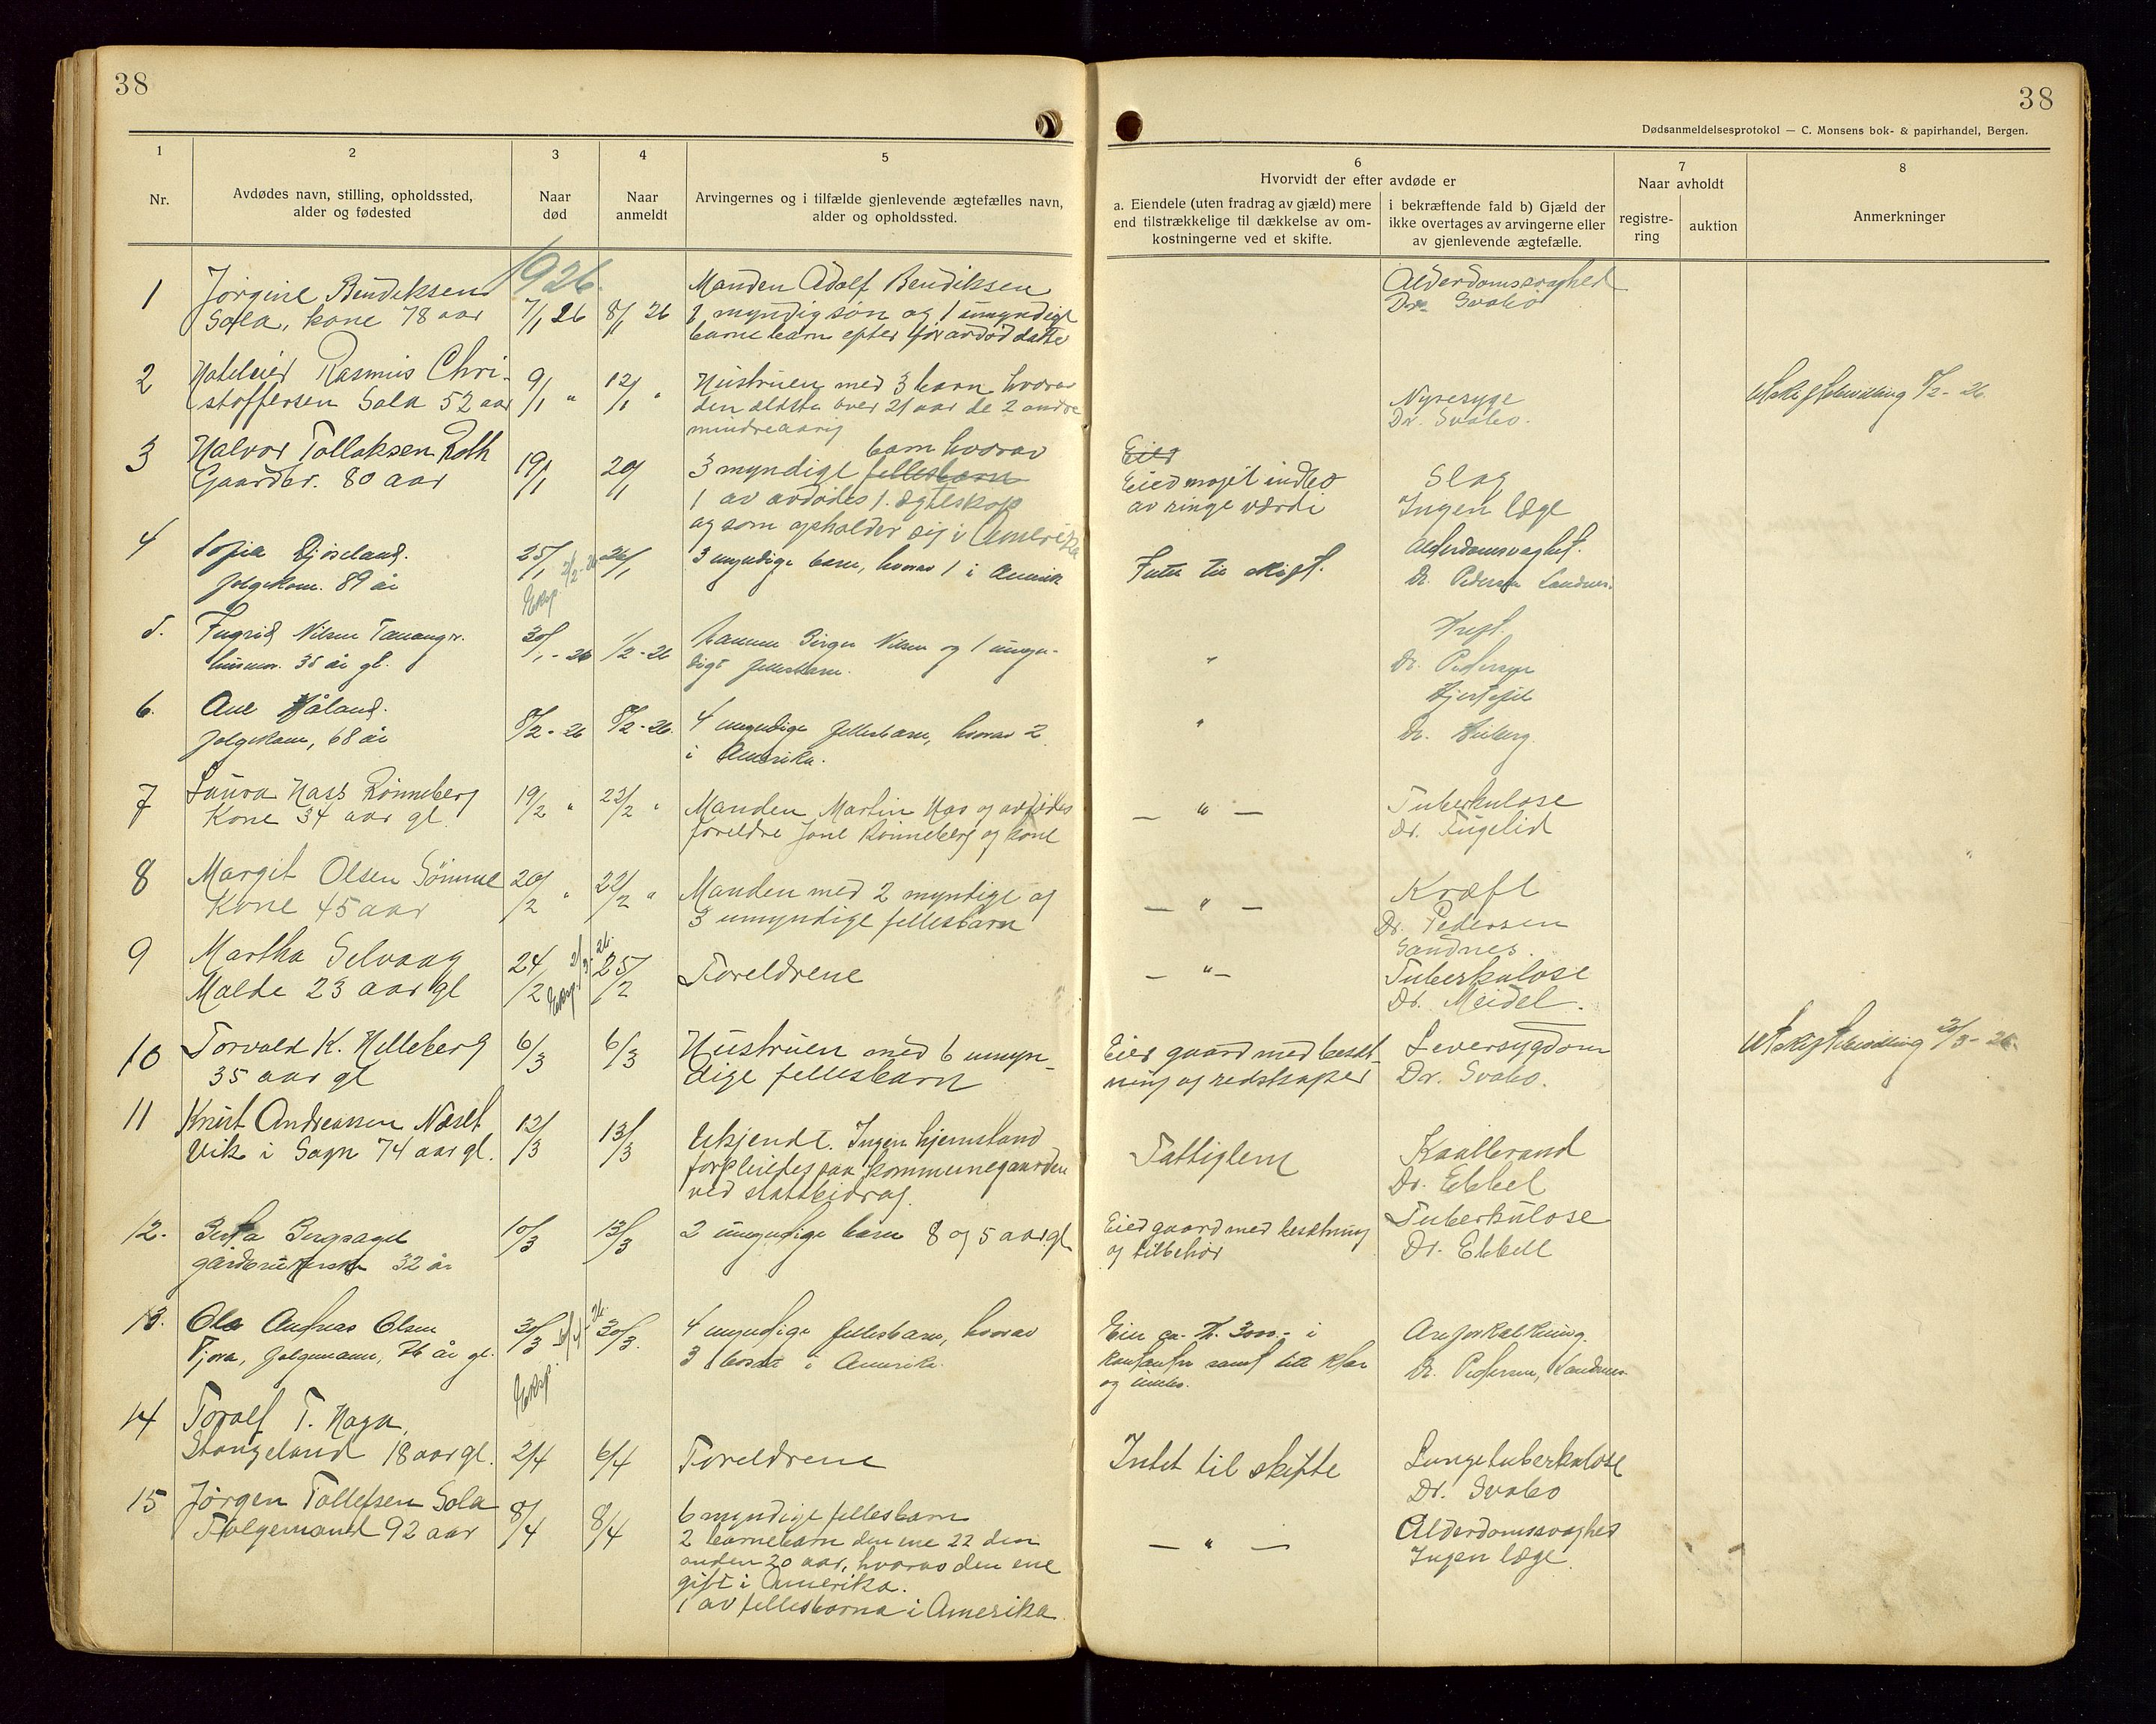 38
38
Dødsanmeldelsesprotokol — C. Monsens bok- & papirhandel, Bergen.
1
Nr.
2
Avdødes navn, stilling, opholdssted,
alder og fødested
3
Naar
død
4
Naar
anmeldt
5
Arvingernes og i tilfælde gjenlevende ægtefælles navn,
alder og opholdssted.
6
Hvorvidt der efter avdøde er
a. Eiendele (uten fradrag av gjæld) mere
end tilstrækkelige til dækkelse av om-
kostningerne ved et skifte.
i bekræftende fald b) Gjæld der
ikke overtages av arvingerne eller
av gjenlevende ægtefælle.
7
Naar avholdt
registre-
ring
auktion
8
Anmerkninger
1926.
1
Jørgine Bendiksen
Sola, kone 78 aar
7/1 26
8/1 26
Manden Adolf Bendiksen
2 myndig søn og 1 umyndigt
barnebarn efter før avdød datter
Alderdomssvaghed
Dr. Svabo
2
Hoteleier Rasmus Chri-
stoffersen Sola 52 aar
9/1 "
12/1 "
Hustruen med 3 barn hvorav
den ældste over 21 aar de 2 andre
mindreaarig
Nyresyge
Dr. Svabo.
Uskiftebevilling 8/2 - 26.
3
Halvor Tollaksen Roth
Gaardbr. 80 aar
19/1
20/1
barn hvorav
3 myndige fellesbarn
1 av avdødes 1. ægteskap
og som opholder sig i Amerika
Eier
Eier noget indbo
av ringe værdi
Slag
Ingen læge
4
Sofia Gjøseland.
folgekone. 89 år
25/1
Eksp. 2/2-26
26/1
3 myndige barn, hvorav 1 i Amerik
Intet til skift.
Alderdomsvaghet.
Dr. Pedersen Sandnes.
5.
Ingrid Nilsen Tananger.
husmor. 35 år gl.
30/1 - 26
1/2 - 26
Birger Nilsen og 1 umyn-
digt fellesbarn.
"
Kreft.
Dr. Pedersen
6.
Ane Håland.
folgekone, 68 år
8/2 - 26
8/2 - 26.
4 myndige fellesbarn, hvorav 2
i Amerika.
"
Hjertefeil
Dr. Hiberg.
7
Laura Hass Rønneberg
Kone 34 aar gl.
19/2 "
22/2 "
Manden Martin Has og avdødes
foreldre Jone Rønneberg og kone
— " —
Tuberkulose
Dr. Fugelid
8
Margit Olsen Sømme
Kone 45 aar
20/2 "
22/2 "
Manden med 2 myndige og
3 umyndige fellesbarn
— " —
Kræft
Dr. Pedersen
Sandnes.
9
Martha Selvaag
Malde 23 aar gl
24/2
Eksp. 2/3-26.
25/2
Foreldrene
— " —
Tuberkulose
Dr. Meidel.
10
Torvald K. Helleberg
35 aar gl
6/3
6/3
Hustruen med 6 umyn-
dige fellesbarn
Eier gaard med besæt-
ning og redskaper
Leversygdom
Dr. Svabo.
Uskiftebevilling 20/3 - 26.
11
Knut Andreassen Næset
Vik i Sogn 74 aar gl.
12/3
13/3
Ukjendt. Ingen hjemstand
forpleiedes paa kommunegaarden
ved statsbidrag.
Fattiglem
Kaalbrand
Dr. Ebbel
12.
Berta Bergsagel
gårdbrukerske 32 år
10/3
13/3
2 umyndige barn 8 og 5 aar gl
Eier gaard med besætning
og tilbehør
Tuberkulose
Dr. Ebbell
13.
Ola Andreas Olsen
Tjora, folgemann, 76 år gl.
30/3
Eksp.
30/3.
4 myndige fellesbarn, hvorav
3 bosat i Amerika.
Eier ca. kr. 3000.- i
kontanter samt litt klær
og innbo.
Åreforkalkning.
Dr. Pedersen, Sandnes
14
Toralf T. Haga,
Stangeland 18 aar gl.
2/4
6/4
Foreldrene
Intet til skifte
Lungetuberkulose
Dr. Svabo
15
Jørgen Tollefsen Sola
Folgemand 92 aar
8/4
8/4
6 myndige fellesbarn
2 barnebarn den ene 22 den
anden 20 aar, hvorav den ene
gift i Amerika.
1 av fellesbarna i Amerika.
— " —
Alderdomssvaghed
Ingen læge.